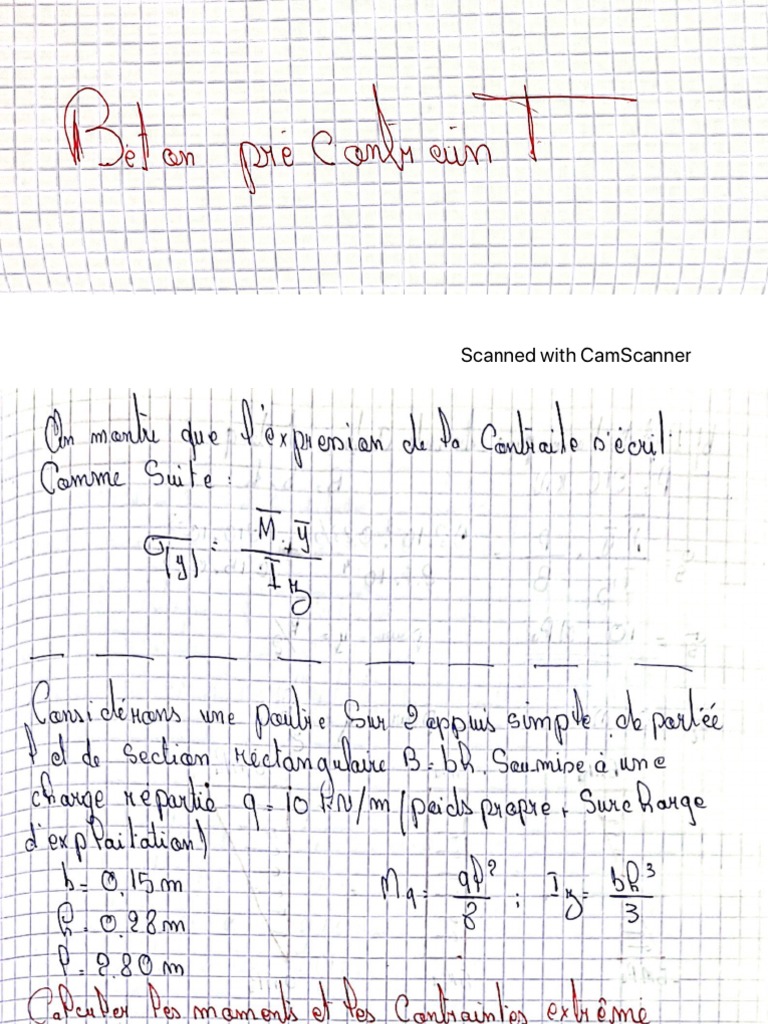 Béton précontraint
Scanned with CamScanner
On montre que l'expression de la Contrainte s'écrit
Comme Suite :
σ(y) = M . y / Iz
Considérons une poutre Sur 2 appuis simple, de portée
l et de section rectangulaire B = bh. Soumise à une
charge répartie q = 10 kN/m (poids propre + Surcharge
d'exploitation)
b = 0,15 m
Mq = ql² / 8 ; Iz = bh³ / 3
h = 0,28 m
l = 2,80 m
Calculer les moments et les Contraintes extrême